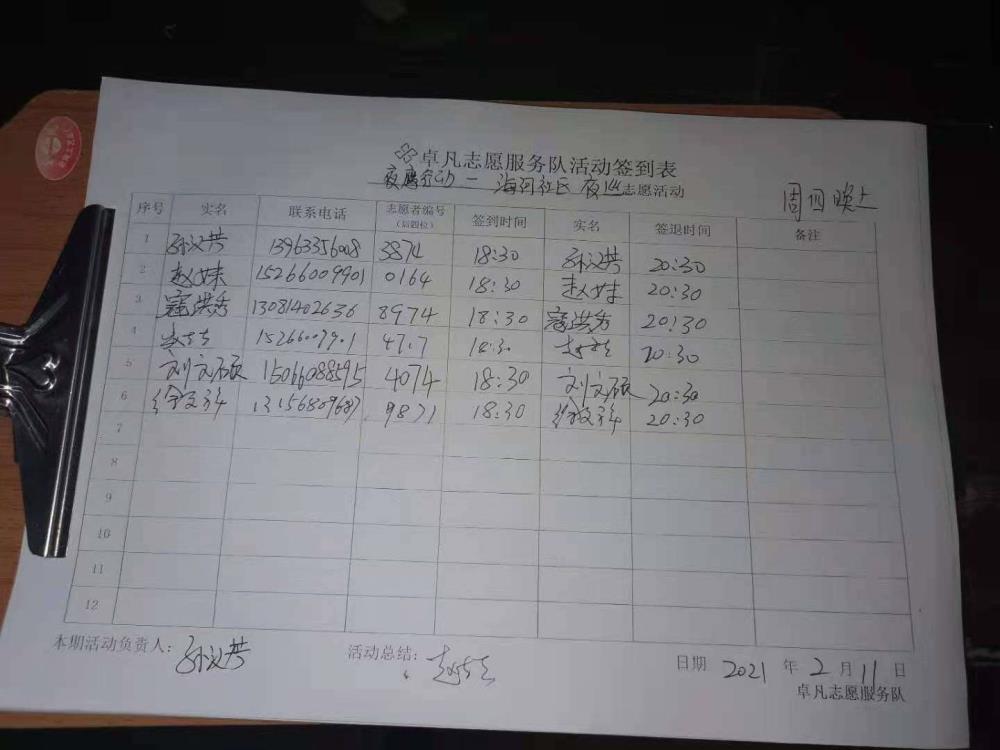 卓凡志愿服务队活动签到表
夜鹰行动一海河社区夜巡志愿活动
周四晚上
序号 实名 联系电话 志愿者编号（后四位） 签到时间 实名 签退时间 备注
1 孙义芳 13963356008 3874 18:30 孙义芳 20:30
2 赵妹 15266009901 0164 18:30 赵妹 20:30
3 寇洪秀 13081402636 8974 18:30 寇洪秀 20:30
4 18:30 20:30
5 刘文硕 15066088595 4074 18:30 刘文硕 20:30
6 13156809687 9871 18:30 20:30
7
8
9
10
11
12
本期活动负责人：孙义芳 活动总结： 日期 2021 年 2 月 11 日
卓凡志愿服务队